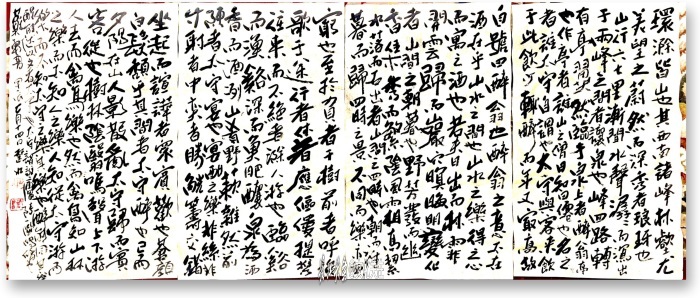 環滁皆山也其西南諸峰林壑尤
美望之蔚然而深秀者琅琊也
山行六七里漸聞水聲潺潺而瀉出
于兩峰之間者釀泉也峰回路轉
有亭翼然臨于泉上者醉翁亭
也作亭者誰山之僧智仙也名之
者誰太守自謂也太守與客來飲
于此飲少輒醉而年又最高故
自號曰醉翁也醉翁之意不在
酒在乎山水之間也山水之樂得之心
而寓之酒也若夫日出而林霏
開雲歸而巖穴暝晦明變化
者山間之朝暮也野芳發而幽
香佳木秀而繁陰風霜高潔
水落而石出者山間之四時也朝而往
暮而歸四時之景不同而樂亦無
窮也至於負者于樹前者呼
歌于途行者休者應傴僂提攜
往來而不絕者滁人游也臨谿
而漁谿深而魚肥釀泉為酒
香而酒洌山肴野蔌雜然前
陳者太守宴也宴酣之樂非絲非
竹射者中奕者勝觥籌交錯
坐起而諠譁者衆賓歡也蒼顏
白髮頹乎其間者太守醉也已而
夕陽在山人影散亂太守歸而賓
客從也樹林陰翳鳴聲上下游
人去而禽鳥樂也然而禽鳥知山林
之樂而不知人之樂人知從太守游而